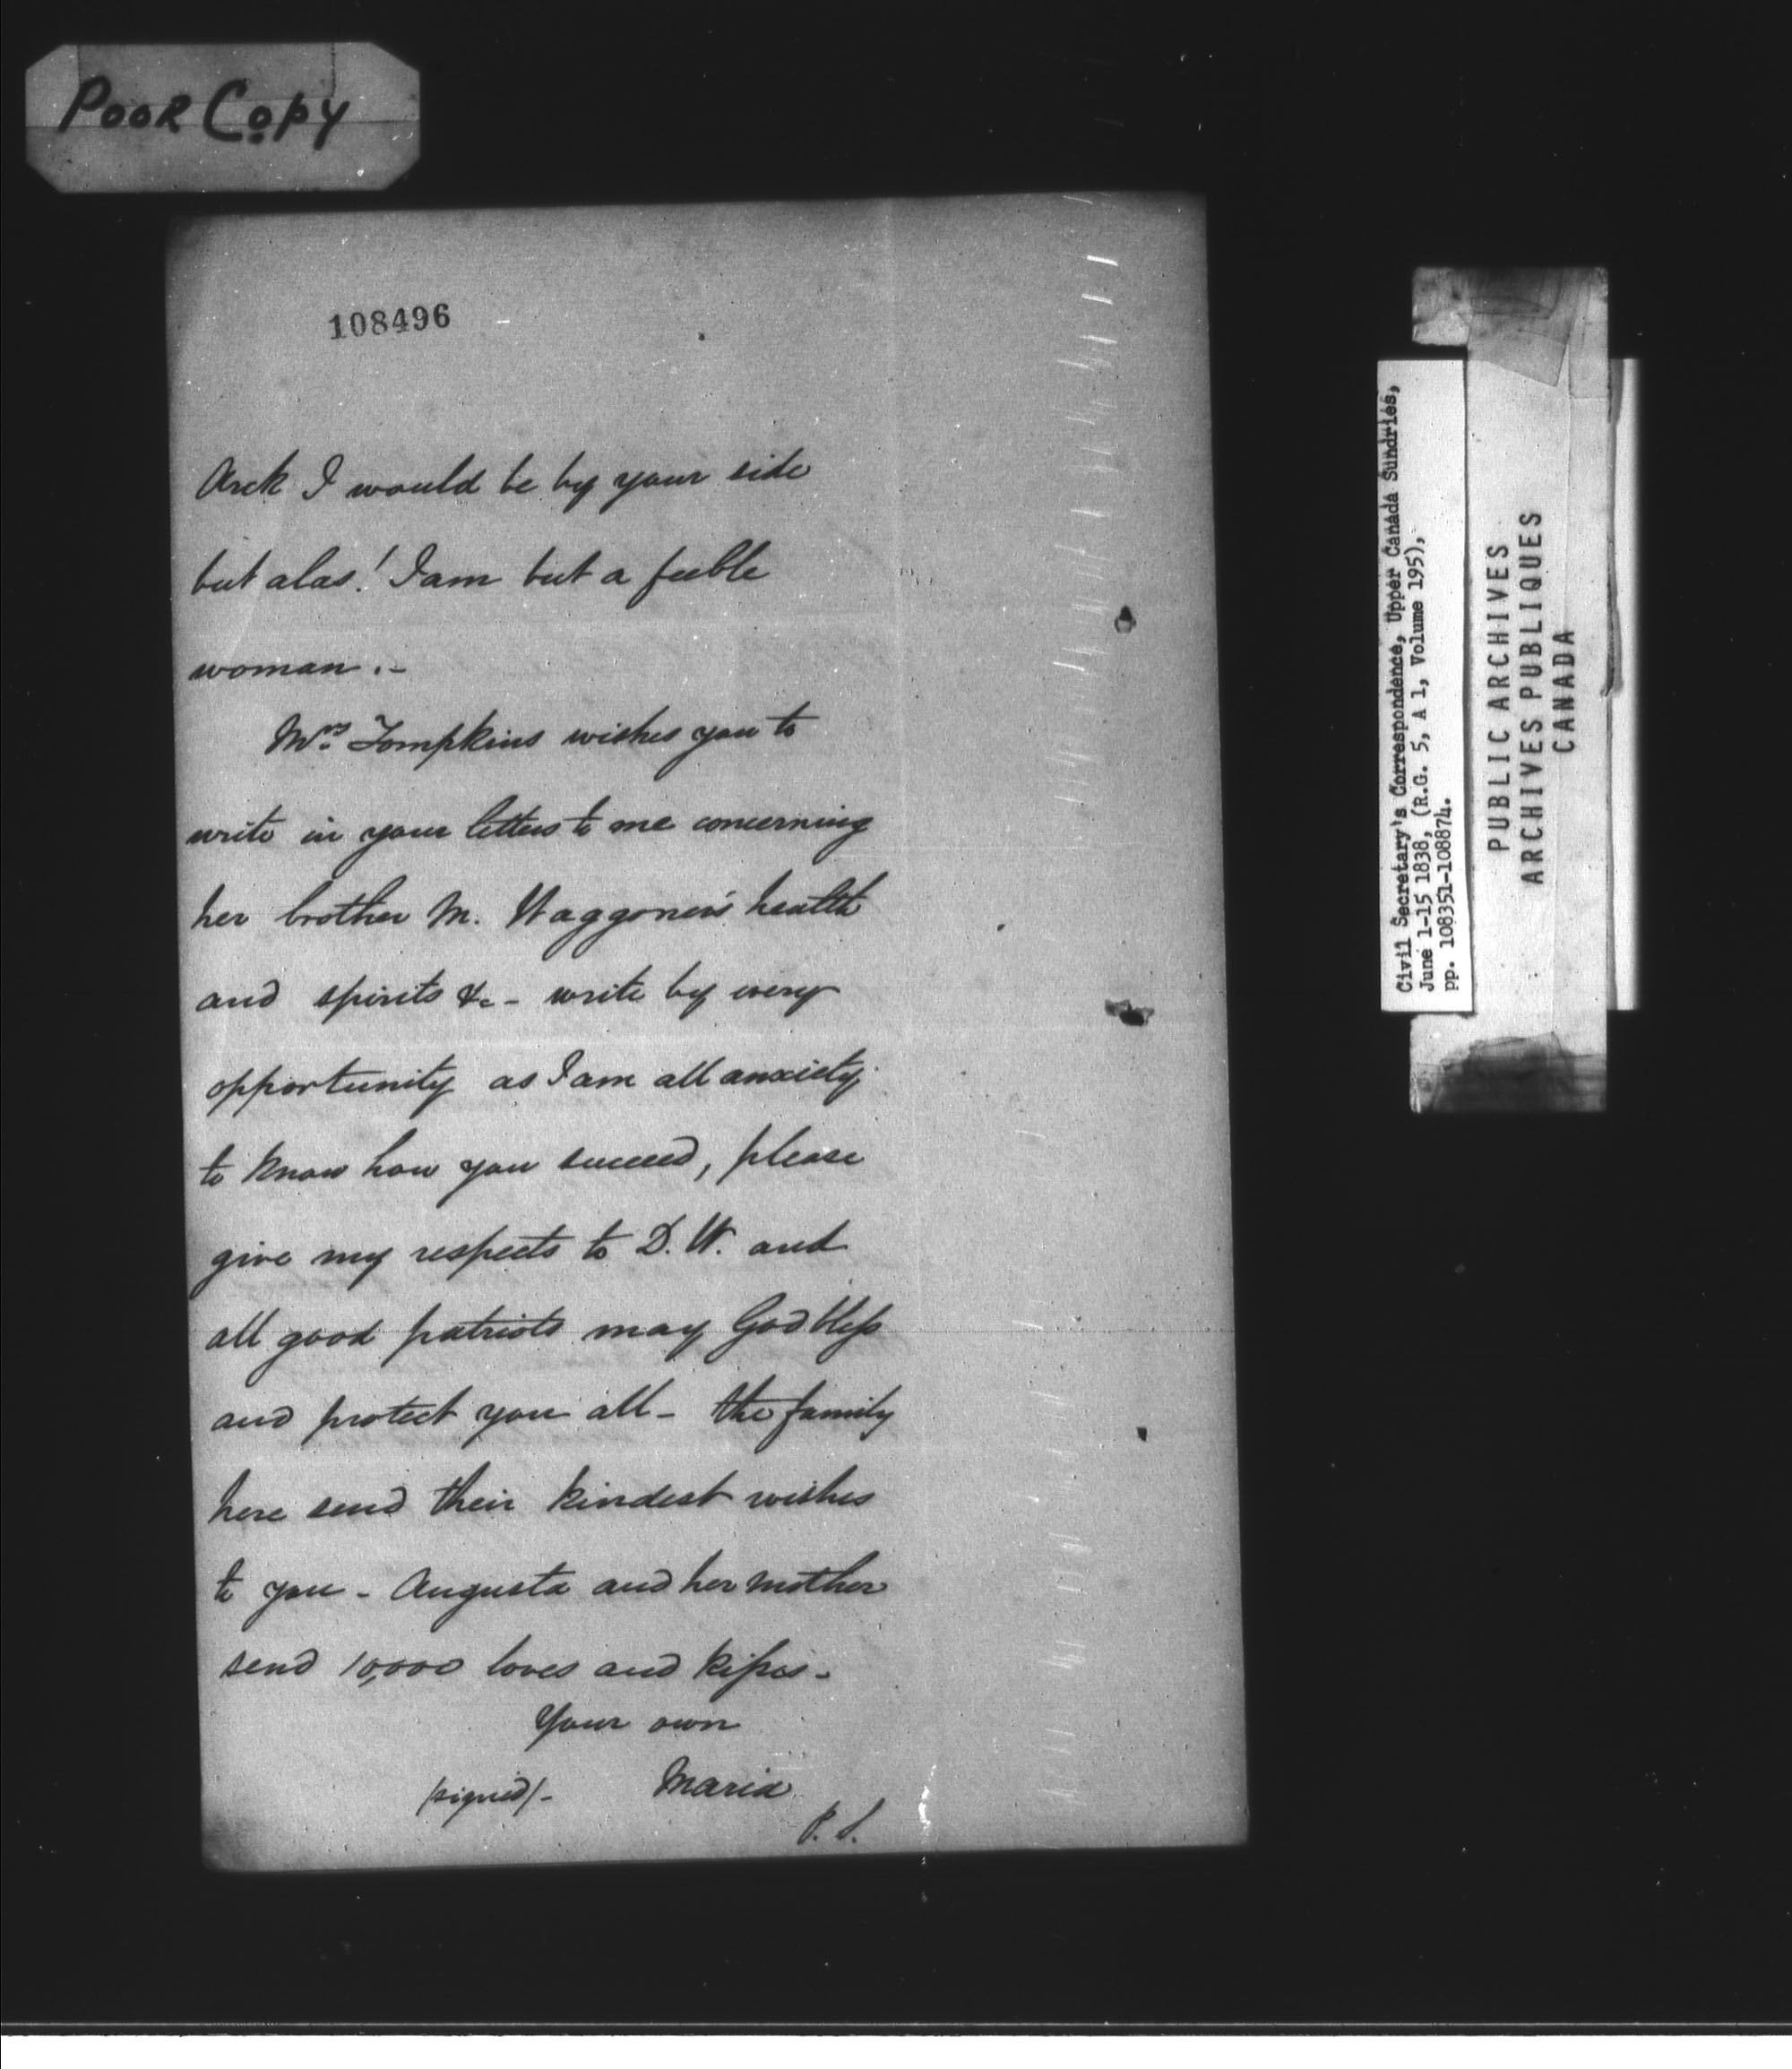 POOR COPY
108496
Arck I would be by your side
but alas! I am but a feeble
woman.-
Mrs. Tompkins wishes you to
write in your letters to me concerning
her brother M. Waggoner's health
and spirits &c - write by every
opportunity as I am all anxiety
to know how you succeed, please
give my respects to D. W. and
all good patriots may God bless
and protect you all - the family
here send their kindest wishes
to you - Augusta and her mother
send 10,000 loves and kisses -
Your own
/signed/- Maria
P. S.
Civil Secretary's Correspondence, Upper Canada Sundries,
June 1-15 1838, (R.G. 5, A 1, Volume 195),
pp. 108351-108874.
PUBLIC ARCHIVES
ARCHIVES PUBLIQUES
CANADA